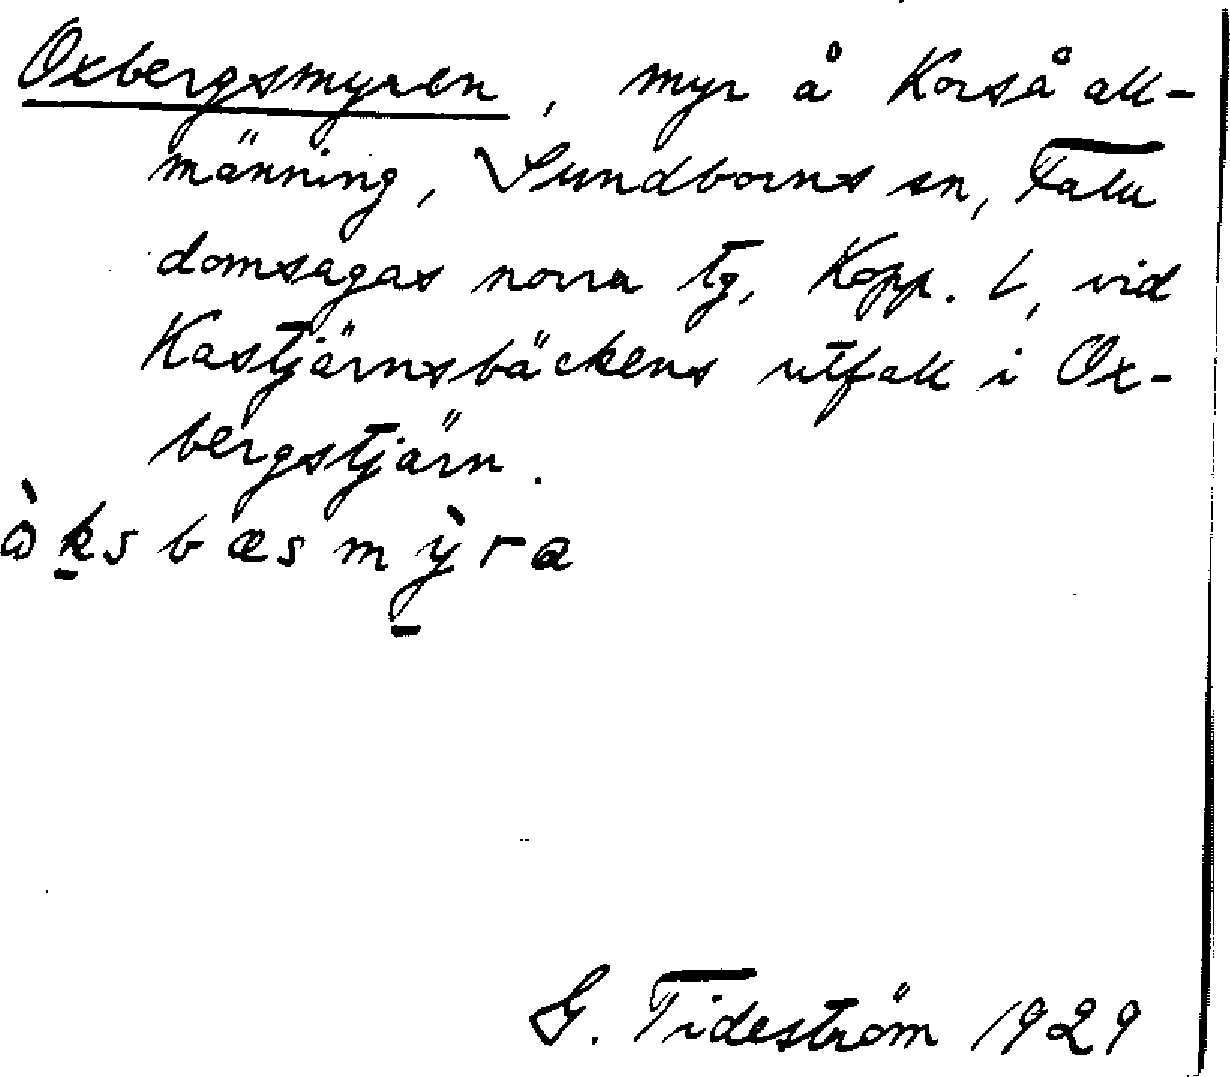 Oxbergsmyren, myr å Korså all-
männing, Sundborns sn, Falu
domsagas norra tg, Kopp. l, vid
Kastjärnsbäckens utfall i Ox-
bergstjärn.
ò̱ksbæsmỳ̱ra
G. Tideström 1929